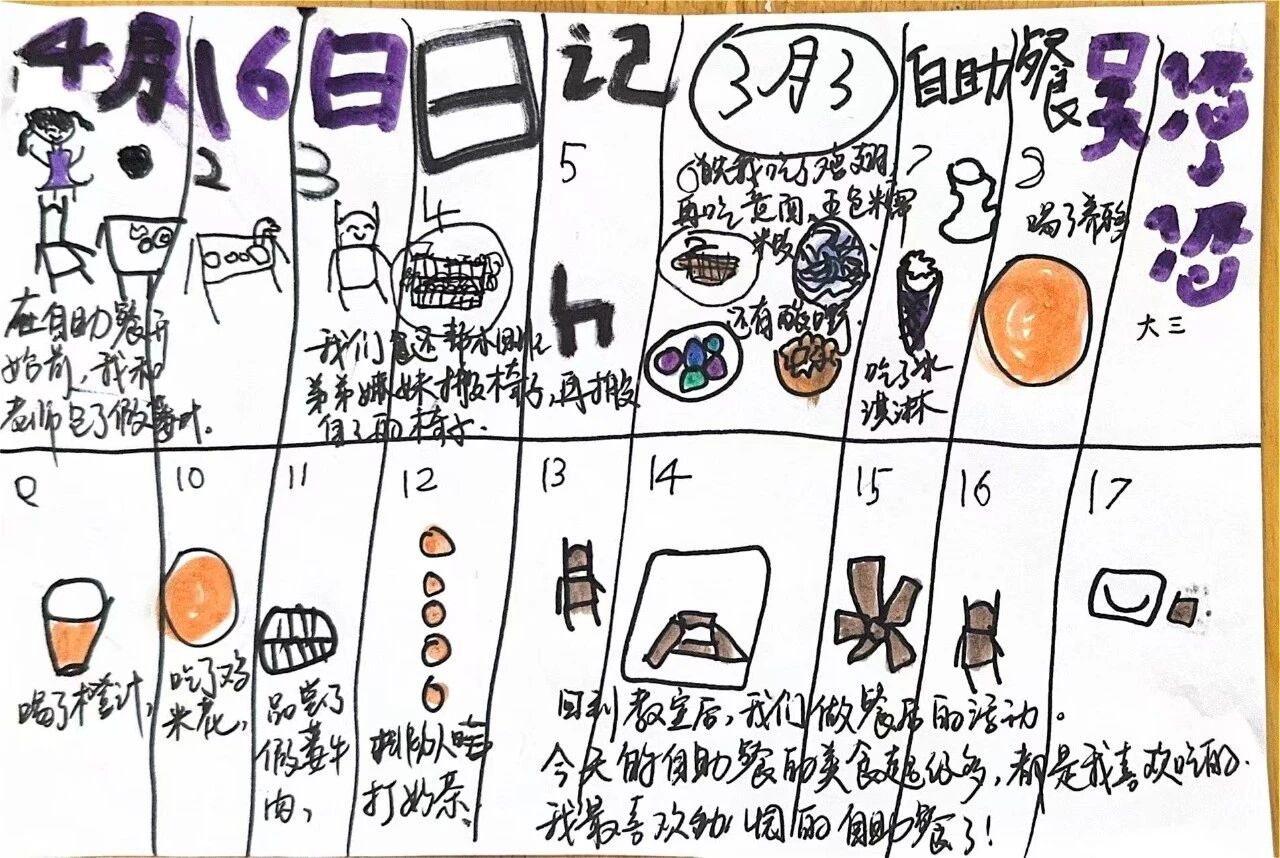 4月16日日记 3月3 自助餐 吴滢滢
大三
2
3
4
5
在自助餐开
始前,我和
老师包了假薑叶.
我们还帮小围的
弟弟妹妹搬椅子,再搬
自己的椅子.
6首先我吃了鸡翅,
再吃意面,五色米
米饭
还有酸嘢.
7
吃了冰
淇淋
8
喝了
9
喝了橙汁,
10
吃了鸡
米花,
11
品尝了
假蒌牛
肉,
12
排队
打奶茶.
13
14
15
16
17
回到教室后,我们做餐后的活动。
今天的自助餐的美食超级多,都是我喜欢吃的.
我最喜欢幼儿园的自助餐了!